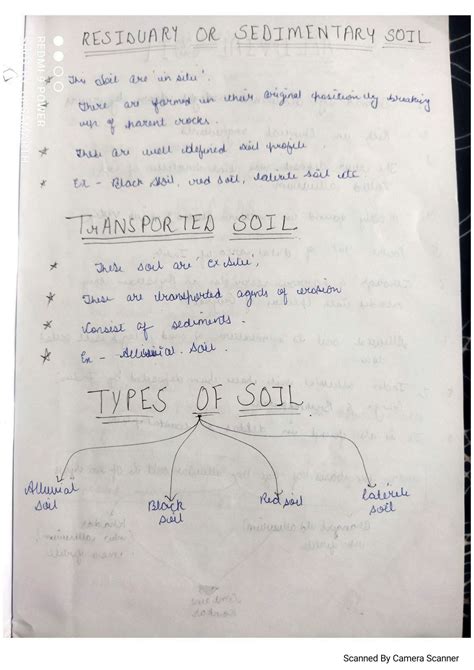 RESIDUARY OR SEDIMENTARY SOIL
* This soil are 'in situ'.
There are formed in their original position by breaking
up of parent crocks.
* These are well defined soil profile.
* Ex - Black Soil, red soil, laterite soil etc
TRANSPORTED SOIL
* These soil are 'ex situ',
* These are transported agents of erosion
* Consist of sediments.
* Ex - Alluvial soil.
TYPES OF SOIL
Alluvial soil
Black soil
Red soil
laterite soil
REDMI 9 POWER
Scanned By Camera Scanner